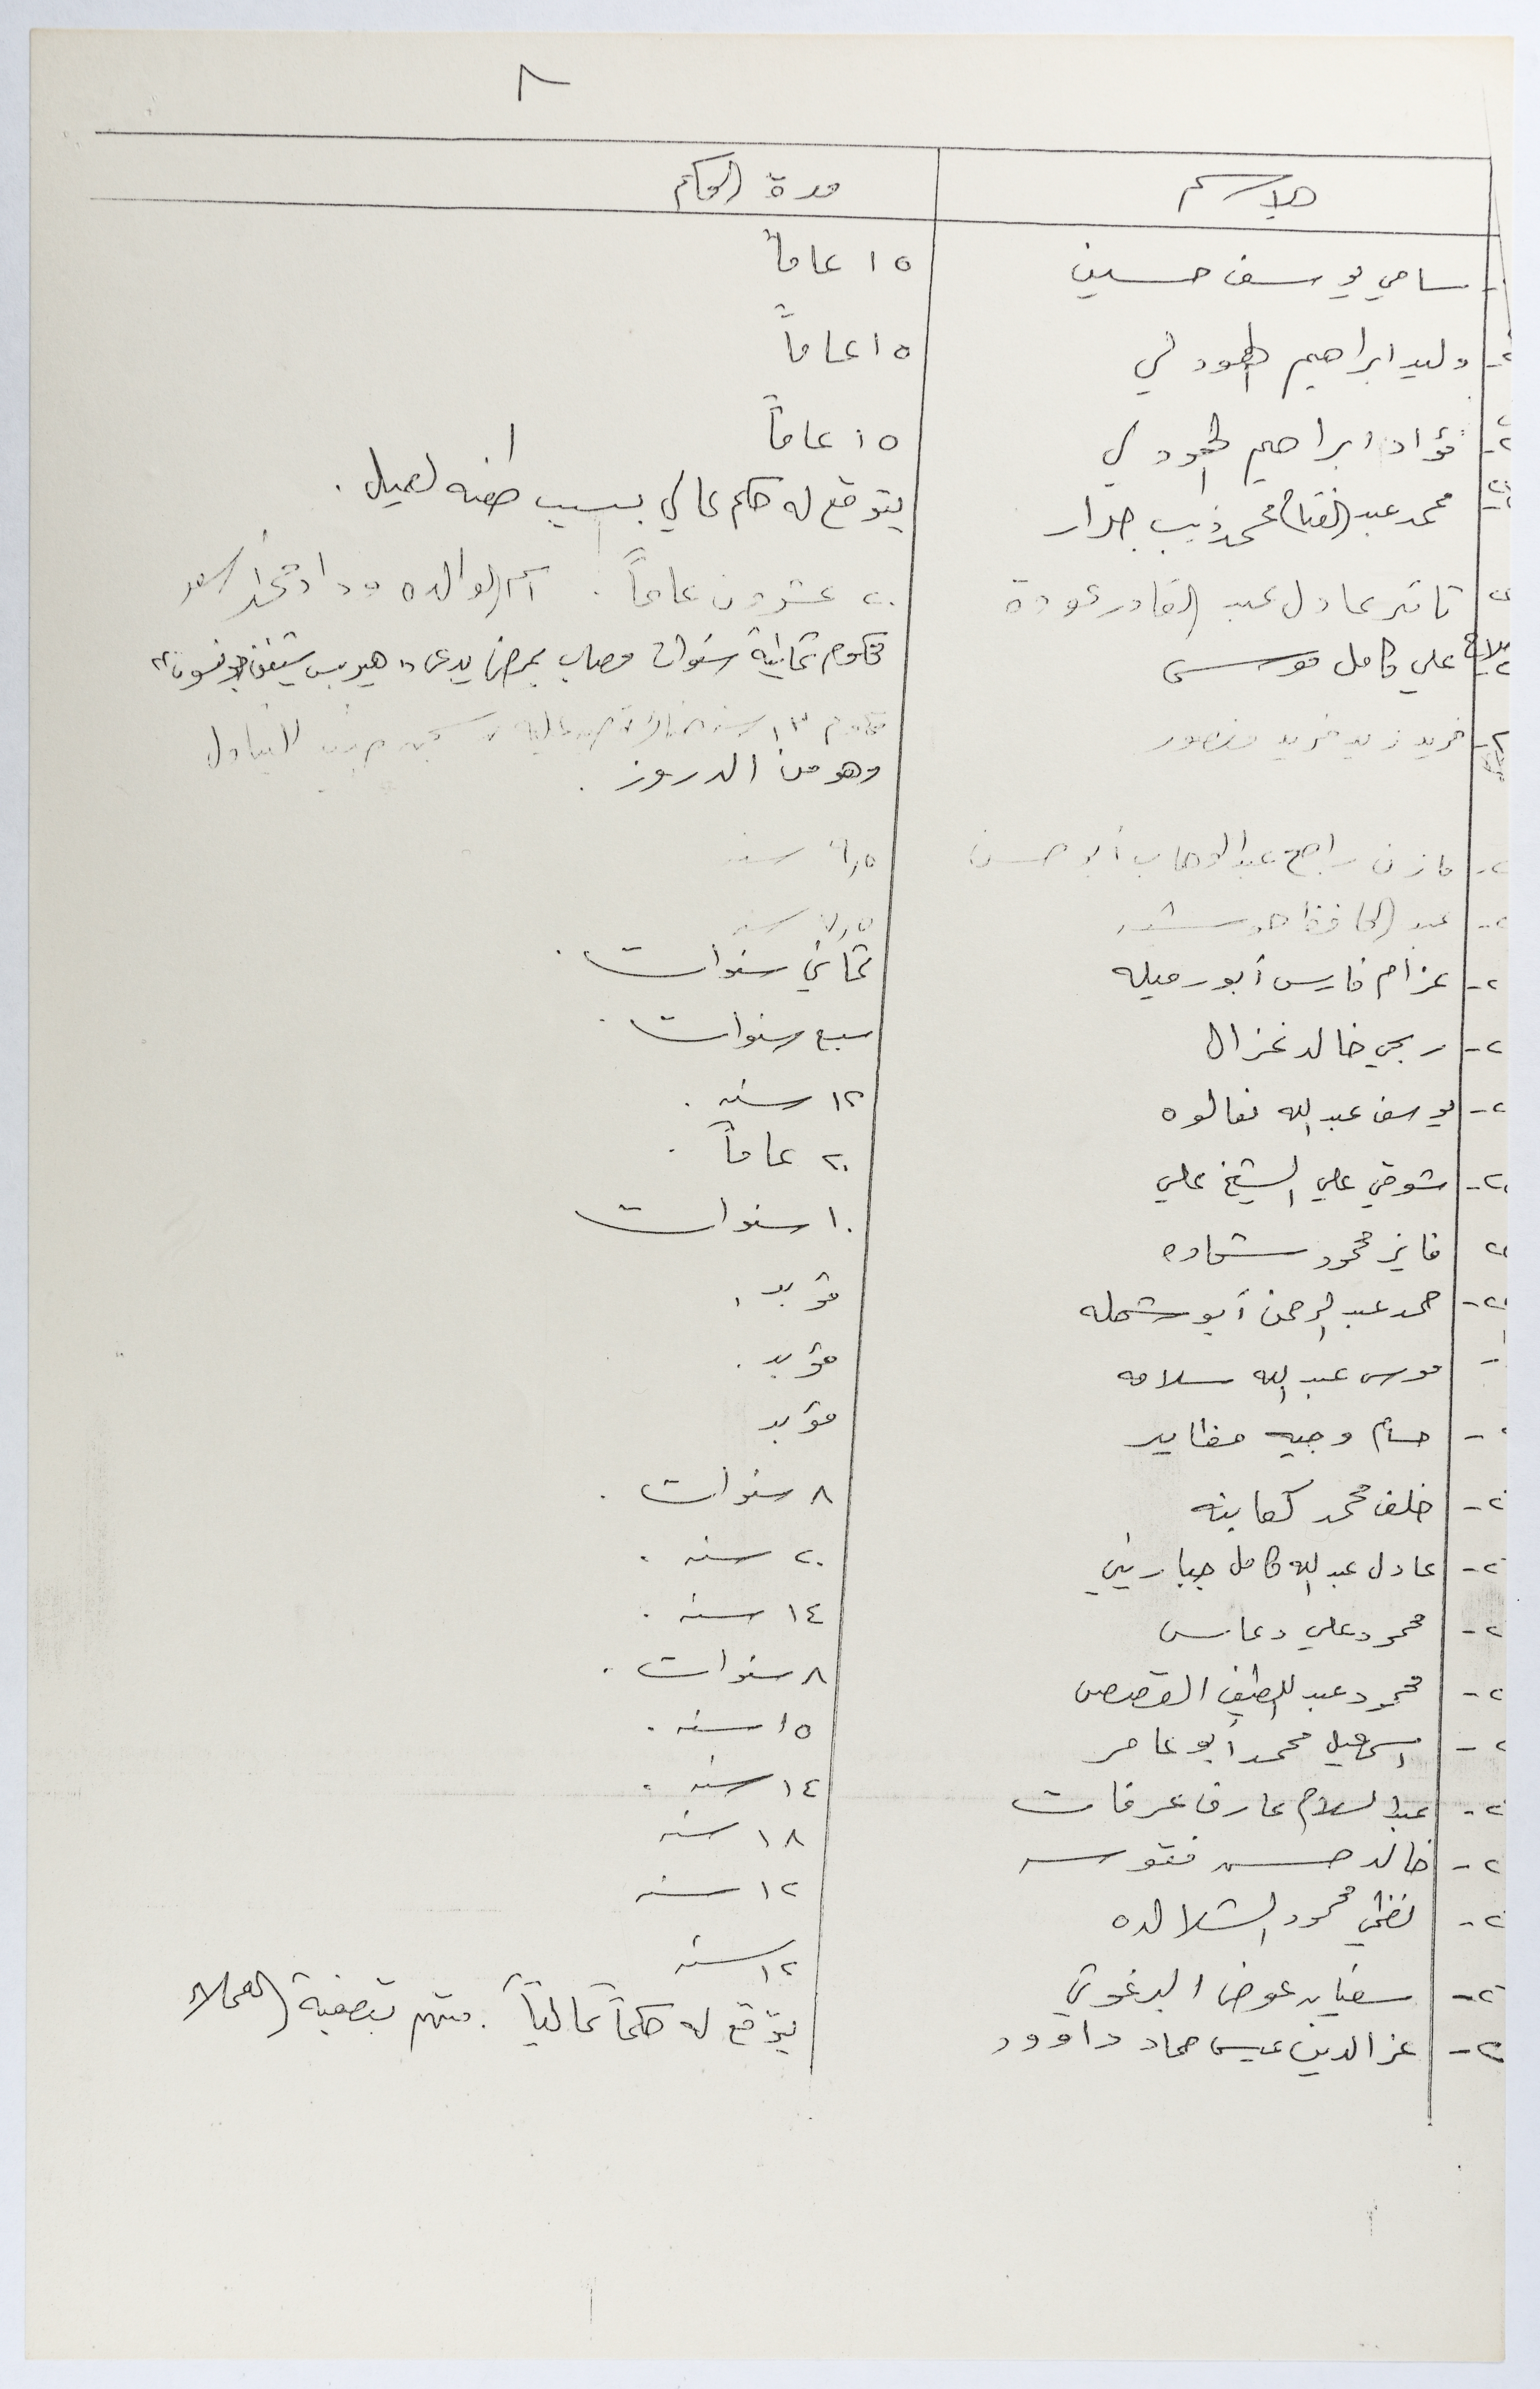 ٨
الاسم مدة الحكم
سامي يوسف حسين ١٥ عاماً
٢- وليد ابراهيم الهودلي ١٥ عاماً
٢- فؤاد ابراهيم الهودلي ١٥ عاماً
محمد عبد الفتاح محمد ذيب جرار يتوقع له حكم عالي بسبب طعنه لعميل .
ثائر عادل عبد القادر عودة ٢٠ عشرون عاماً . اسم الوالده وداد
علي كامل موسى محكوم ثمانية سنوات مصاب بمرض يدعى
فريد زيد فريد منصور محكوم ١٣ سنة للتبادل
وهو من الدروز .
٢- مازن راجح عبد الوهاب أبو حسن سنه
٢- عبد الحافظ سنه
٢- عزام فارس أبو رميله ثماني سنوات .
٢- ربحي خالد غزال سبع سنوات .
٢- يوسف عبد الله نعالوه ١٢ سنه .
٢- شوقي علي الشيخ علي ٢٠ عاماً .
٢ فايز محمود شحاده ١٠ سنوات
٢- حمد عبد الرحمن أبو شمله مؤبد .
- موسى عبد الله سلامه مؤبد .
- حسام وجيه مؤبد
٢- خلف محمد كعابنه ٨ سنوات .
٢- عادل عبد الله كامل جباريني ٢٠ سنه .
٢- محمود علي دعاس ١٤ سنه .
٢- محمود عبد اللطيف القصص ٨ سنوات .
٢- اسمعيل محمد أبو عامر ١٥ سنه .
٢- عبد السلام عارف عرفات ١٤ سنه .
٢- خالد حسن فقوسه ١٨ سنه
٢- نظمي محمود الشلالده ١٢ سنه
٢- سفيان عوض البرغوثي ١٢ سنه
٢- عز الدين عيسى حماد داوود يتوقع له حكماً عالياً . متهم بتصفية العملاء